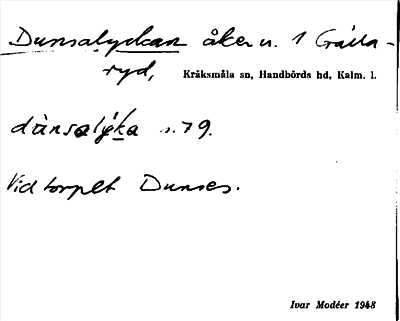 Dunsalyckan åker n. 1 Gålla-
ryd,
Kråksmåla sn, Handbörds hd, Kalm. l.
dùnsalýka s. 79.
Vid torpet Dunses.
Ivar Modéer 1948